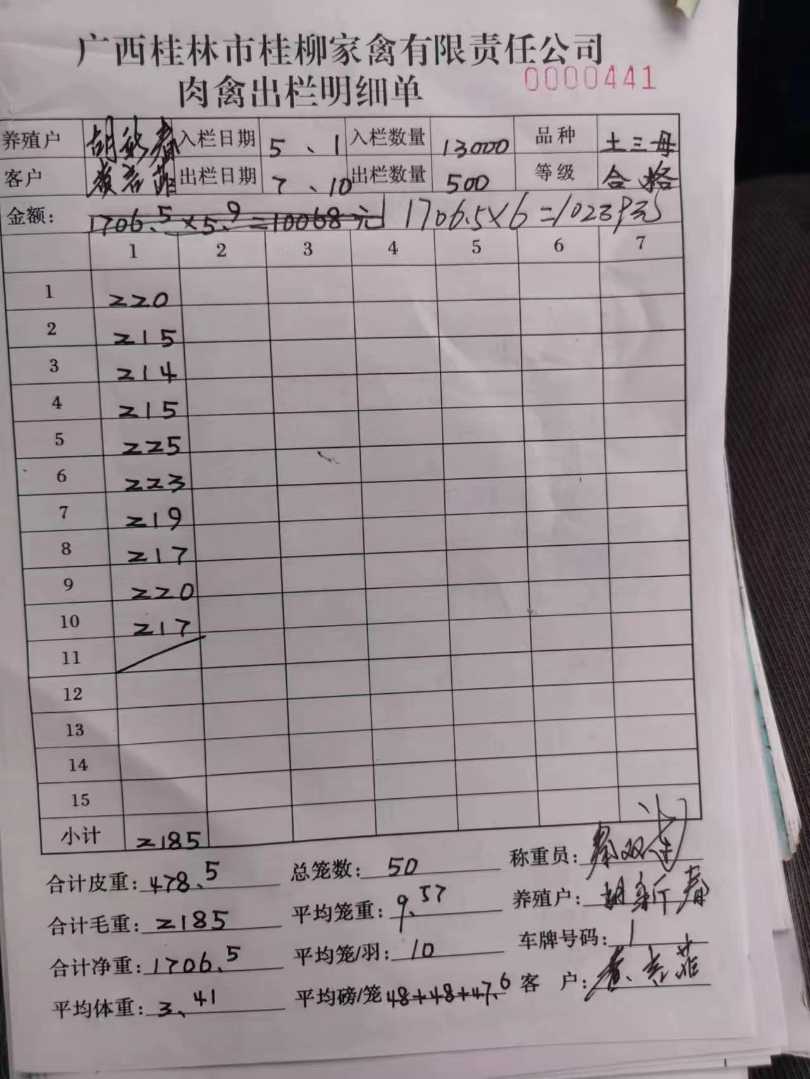 广西桂林市桂柳家禽有限责任公司
肉禽出栏明细单 0000441
养殖户 胡新春 入栏日期 5、1 入栏数量 13000 品种 土三母
客户 出栏日期 7、10 出栏数量 500 等级 合格
金额: 1706.5×5.9=10068元 1706.5×6=10239元
1 2 3 4 5 6 7
1 220
2 215
3 214
4 215
5 225
6 223
7 219
8 217
9 220
10 217
11
12
13
14
15
小计 2185
合计皮重: 478.5 总笼数: 50 称重员: 秦双
合计毛重: 2185 平均笼重: 9.57 养殖户: 胡新春
合计净重: 1706.5 平均笼/羽: 10 车牌号码: 1
平均体重: 3、41 平均磅/笼 48+48+47.6 客户: